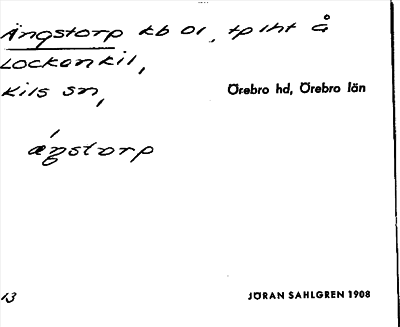 Ängstorp kb ol, tp lht å
Lockankil,
Kils sn,
Örebro hd, Örebro län
ængstorp
13
JÖRAN SAHLGREN 1908